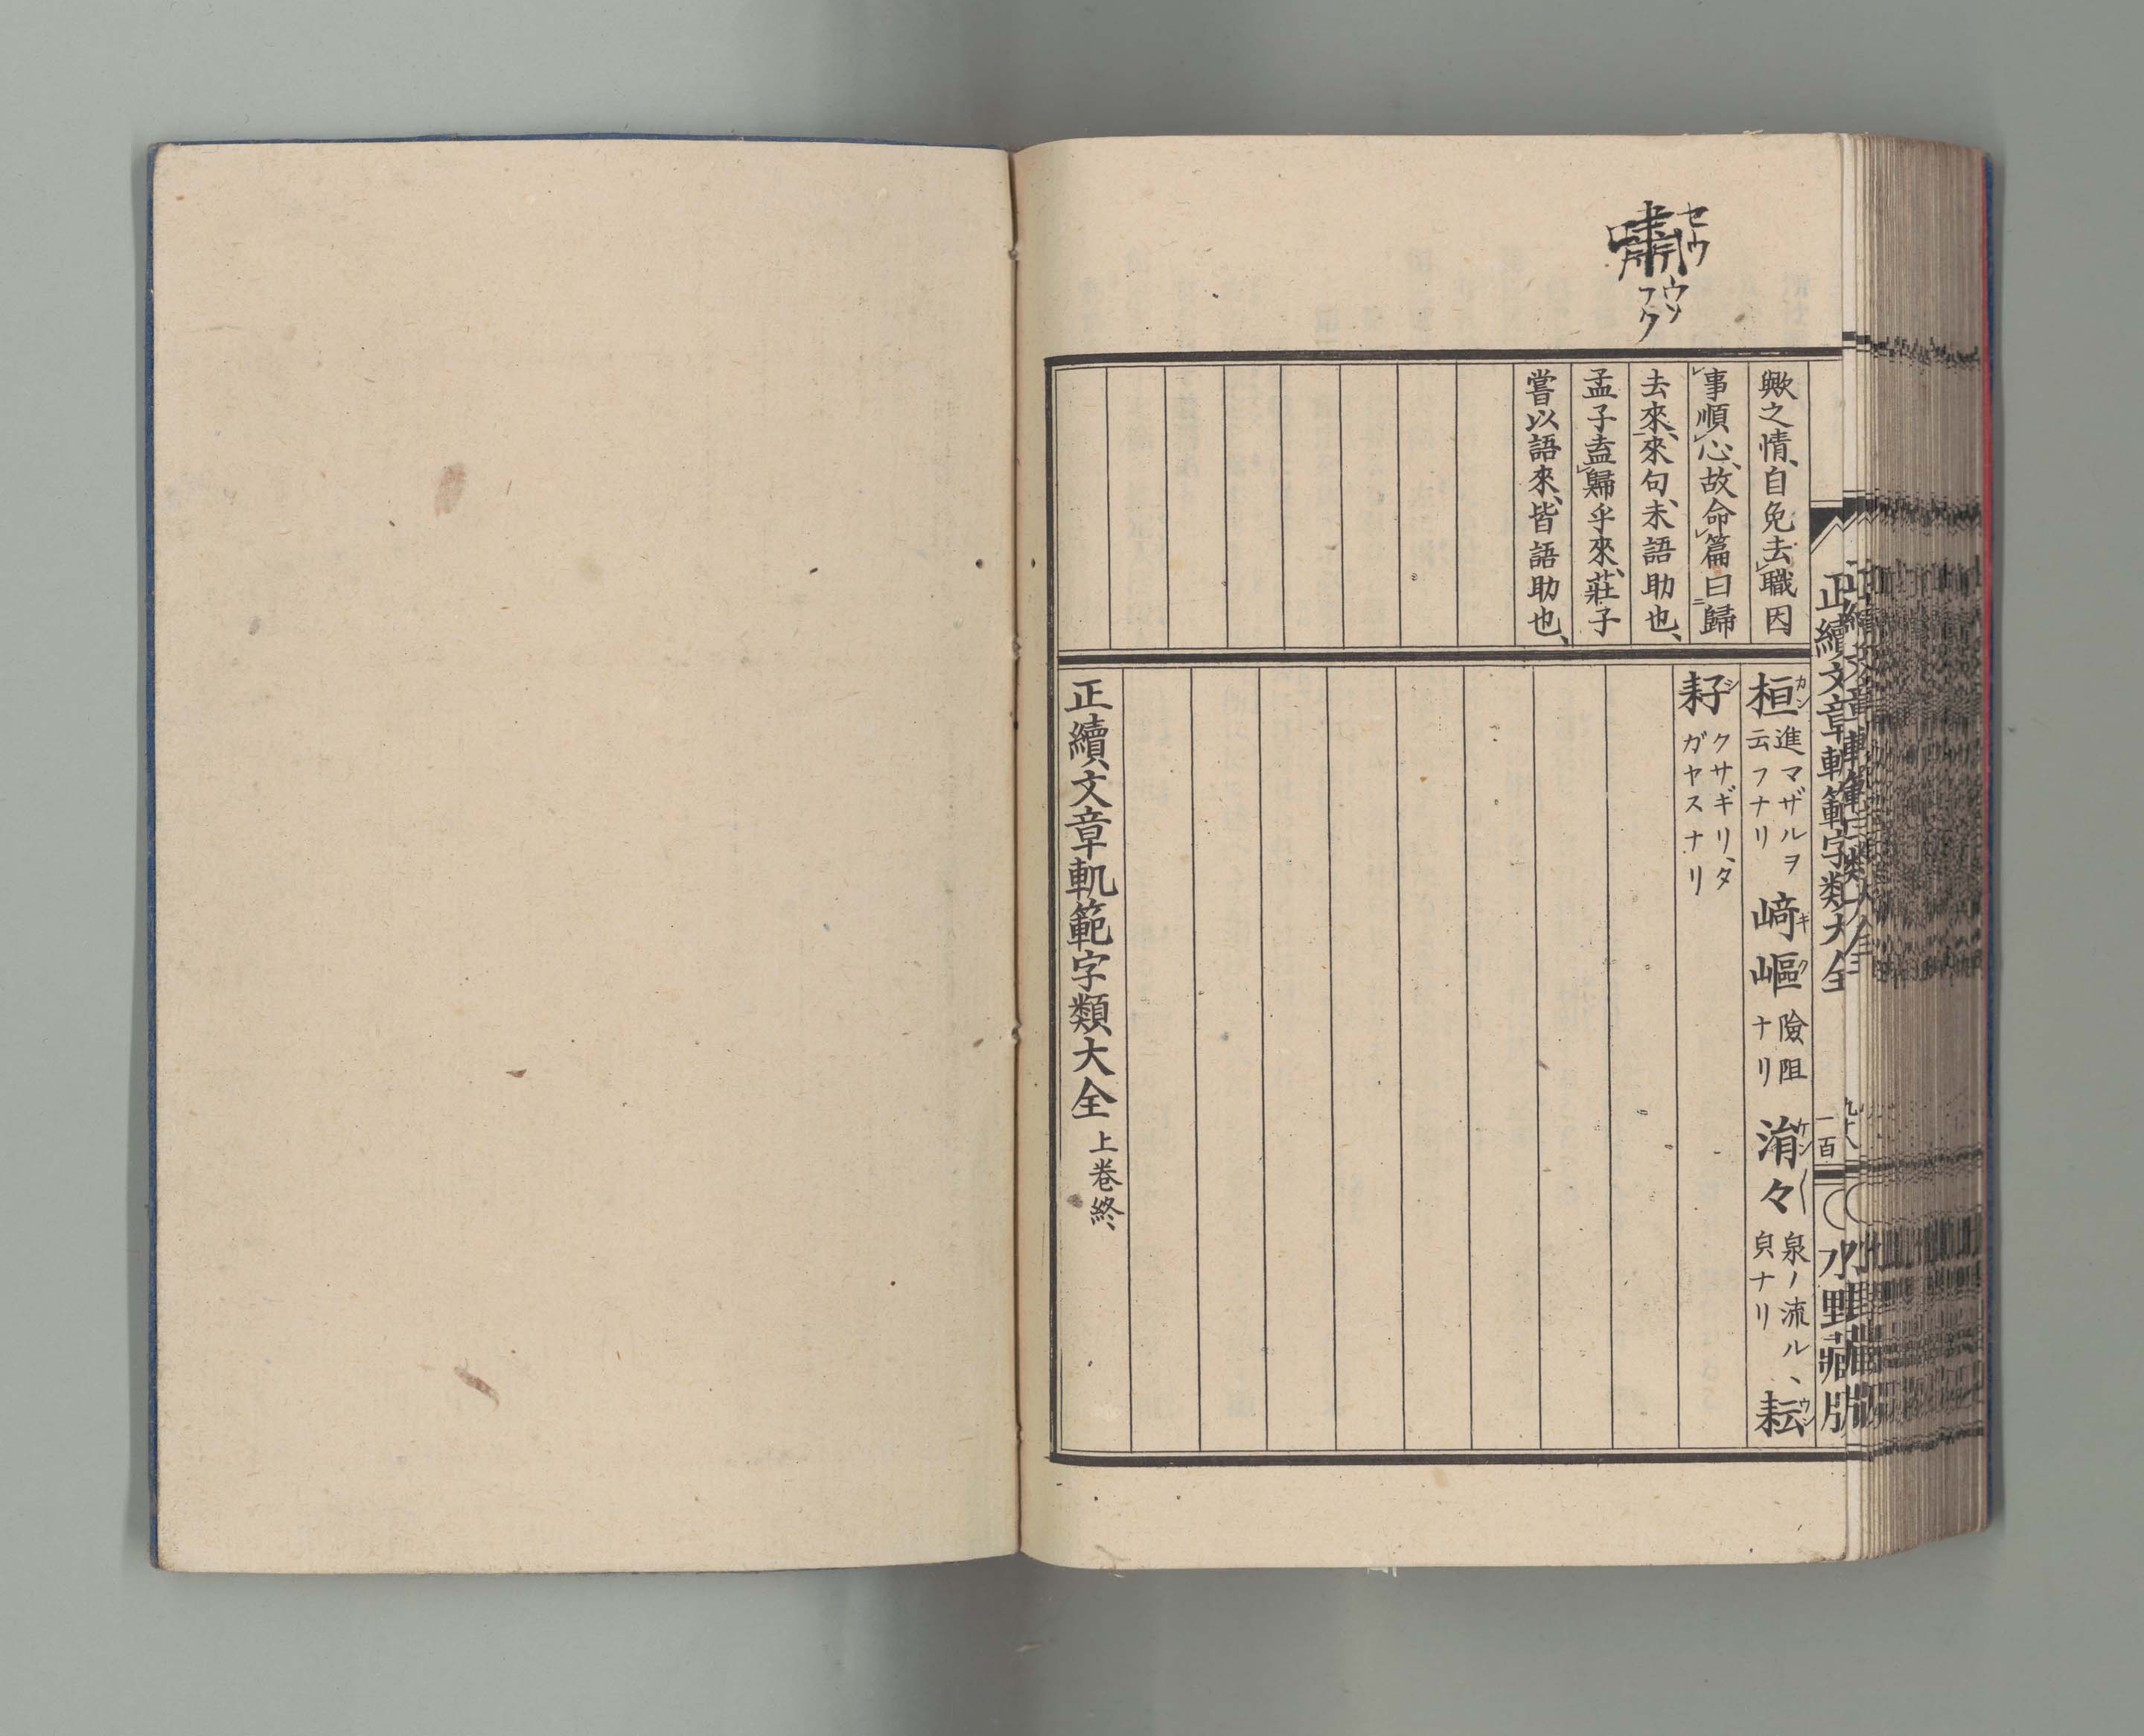 嘯
セウ
ウソ
フク
歟之情、自免去職因
事順心、故命篇曰歸
去來、來句、未語助也、
孟子盍歸乎來、莊子
嘗以語來、皆語助也、
桓 進マザルヲ云フナリ 﨑嶇 險阻ナリ 涓々 泉ノ流ル、皃ナリ 耘
カン キク ケン〱 ウン
耔 クサギリ、タガヤスナリ
シ
正續文章軌範字類大全 上卷終
正續文章軌範字類大全 一百 水野藏版